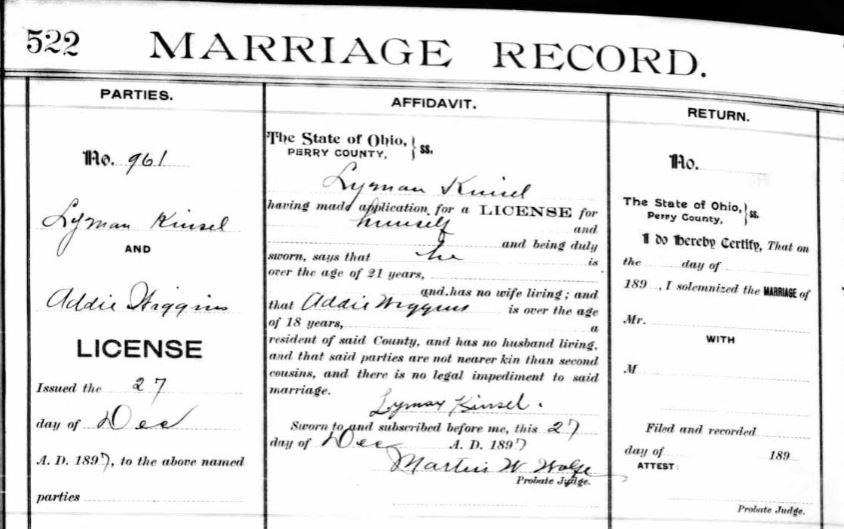 522 MARRIAGE RECORD.
PARTIES.
No. 961
Lyman Kinsel
AND
Addie Wiggins
LICENSE
Issued the 27
day of Dec
A. D. 1897, to the above named
parties
AFFIDAVIT.
The State of Ohio, } ss.
PERRY COUNTY,
Lyman Kinsel
having made application for a LICENSE for
himself and
and being duly
sworn, says that he is
over the age of 21 years,
and has no wife living; and
that Addie Wiggins is over the age
of 18 years, a
resident of said County, and has no husband living,
and that said parties are not nearer kin than second
cousins, and there is no legal impediment to said
marriage.
Lyman Kinsel.
Sworn to and subscribed before me, this 27
day of Dec A. D. 1897
Martin W Wolfe
Probate Judge.
RETURN.
No.
The State of Ohio, } ss.
Perry County,
I do Hereby Certify, That on
the day of
189 , I solemnized the MARRIAGE of
Mr.
WITH
M
Filed and recorded
day of 189
ATTEST:
Probate Judge.